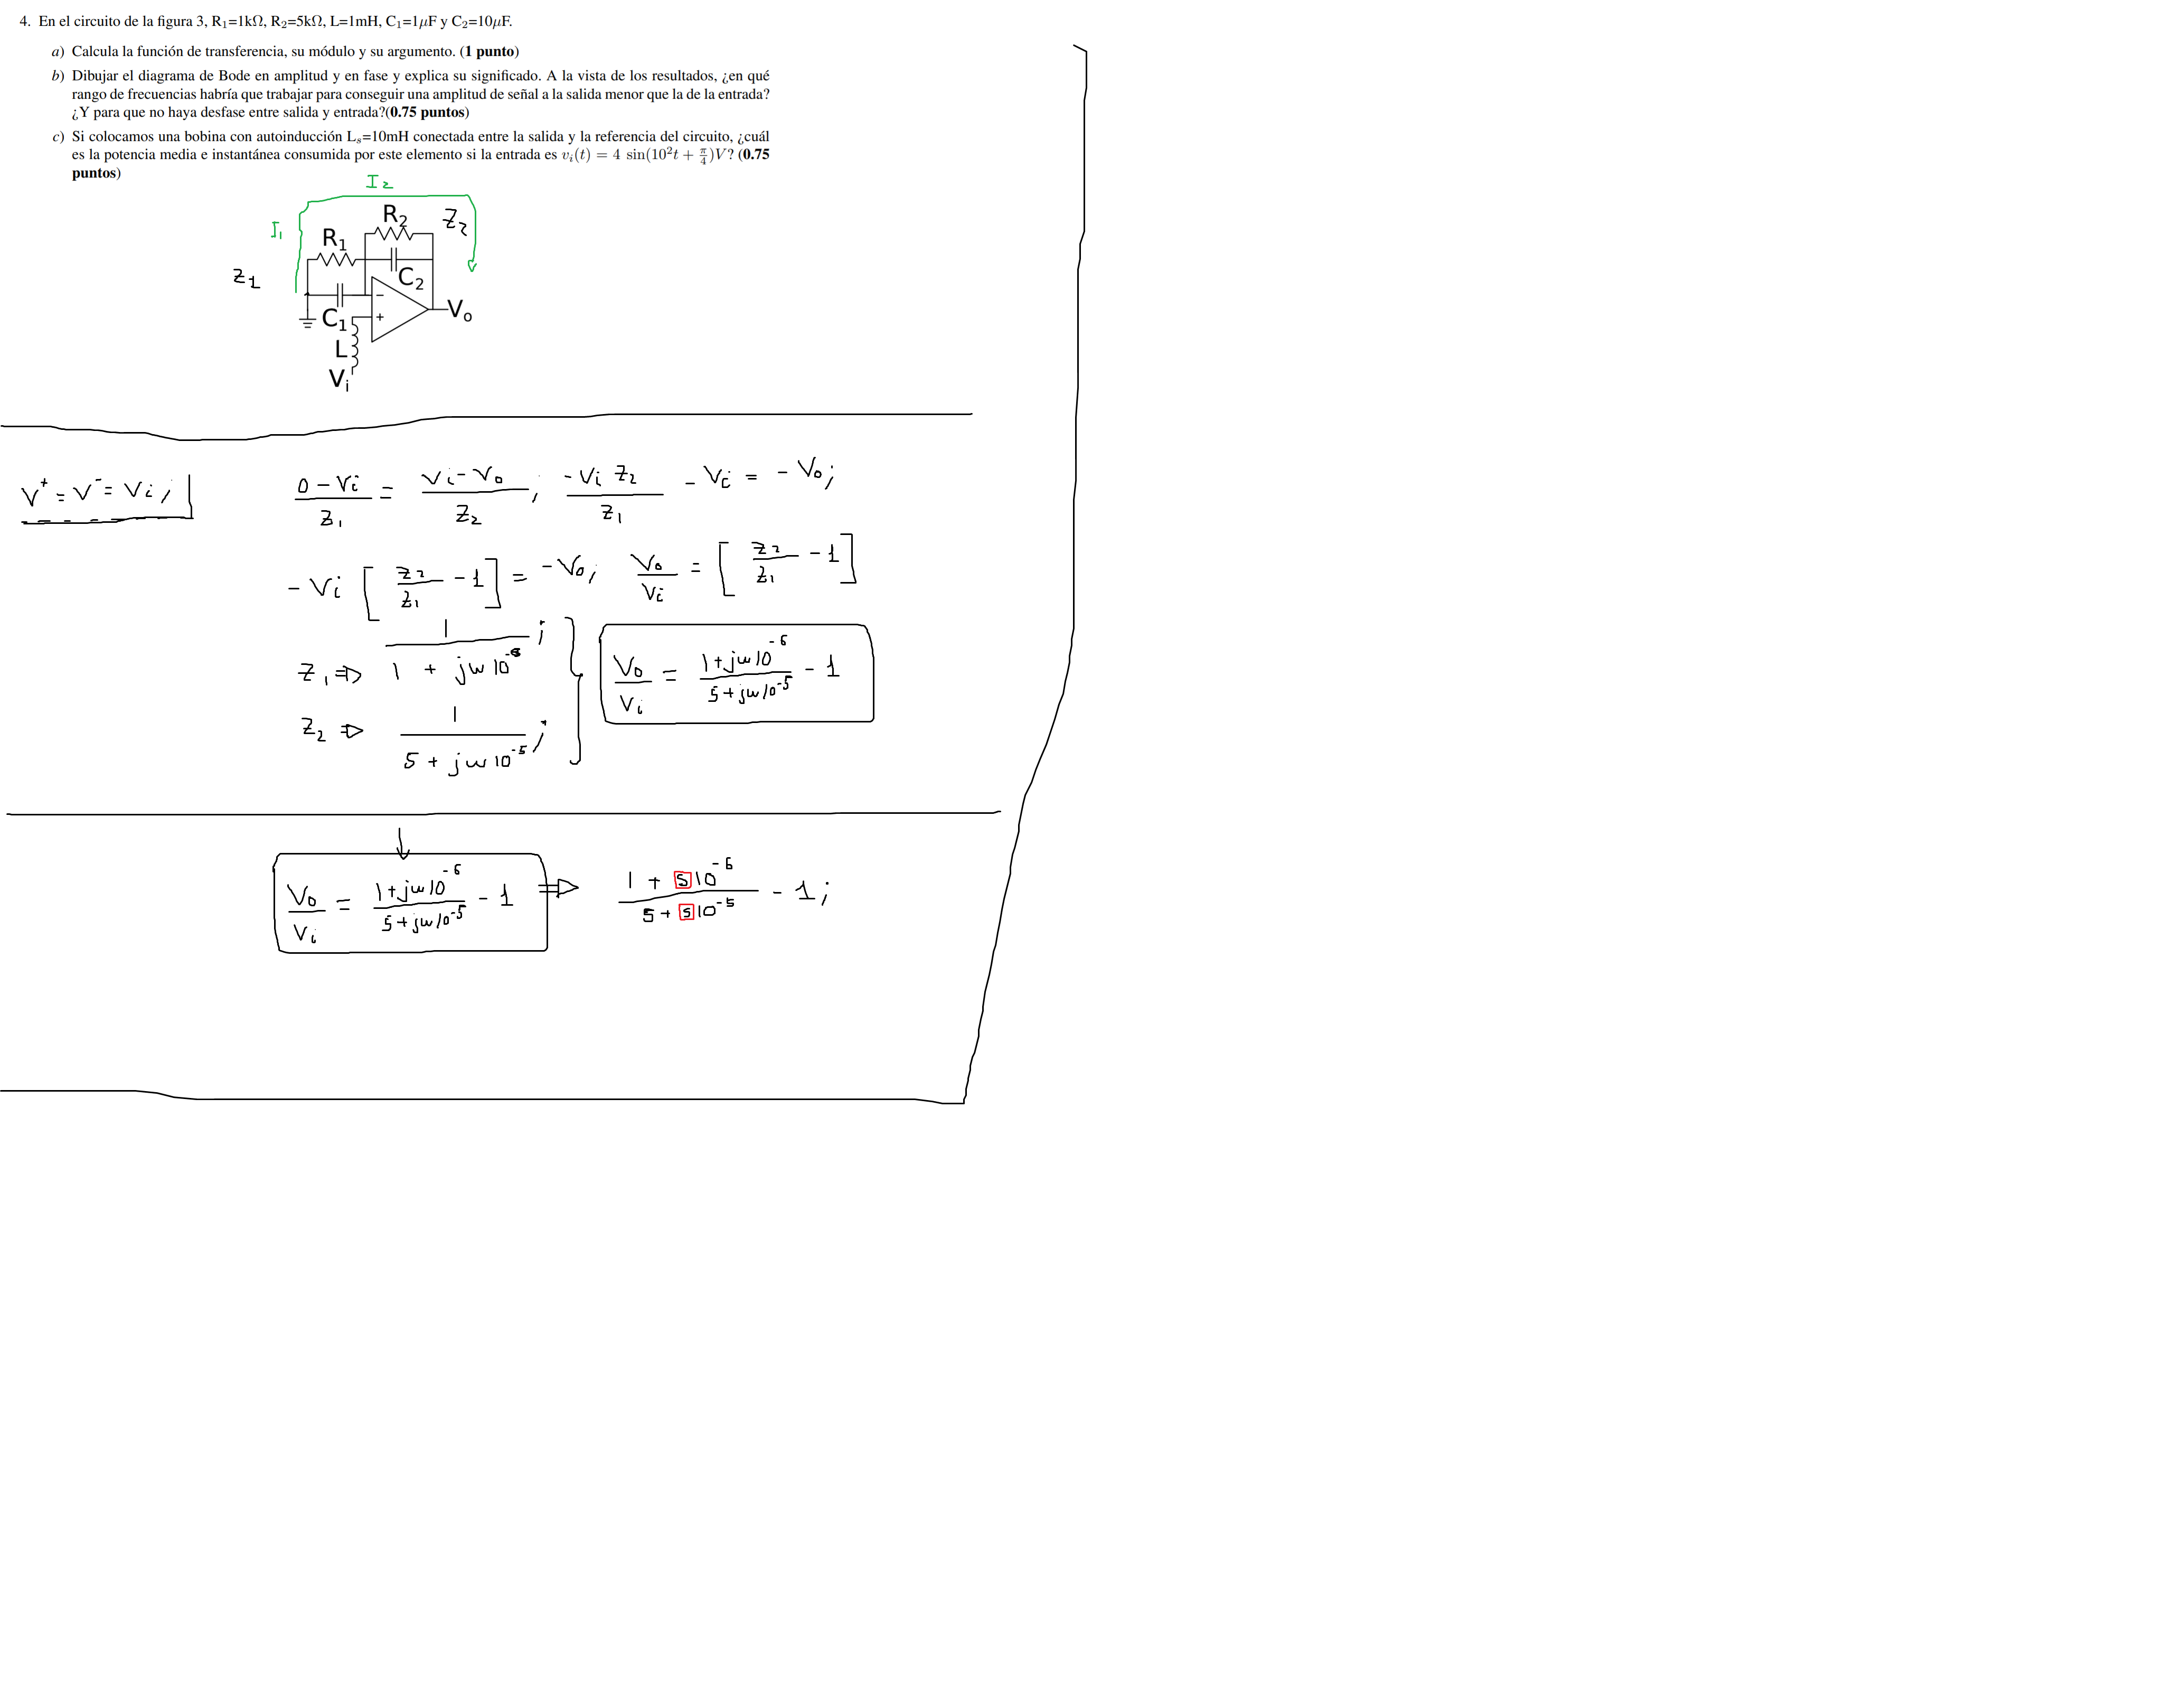 4. En el circuito de la figura 3, R₁=1kΩ, R₂=5kΩ, L=1mH, C₁=1μF y C₂=10μF.
a) Calcula la función de transferencia, su módulo y su argumento. (1 punto)
b) Dibujar el diagrama de Bode en amplitud y en fase y explica su significado. A la vista de los resultados, ¿en qué
rango de frecuencias habría que trabajar para conseguir una amplitud de señal a la salida menor que la de la entrada?
¿Y para que no haya desfase entre salida y entrada?(0.75 puntos)
c) Si colocamos una bobina con autoinducción Lₛ=10mH conectada entre la salida y la referencia del circuito, ¿cuál
es la potencia media e instantánea consumida por este elemento si la entrada es vᵢ(t) = 4 sin(10²t + π/4)V? (0.75
puntos)
I₂
R₂ Z₂
I₁
R₁
Z₁
C₂
−
+
Vₒ
C₁
L
Vᵢ
V⁺ = V⁻ = Vi; (0 − Vi)/Z₁ = (Vi − V₀)/Z₂; (−Vi Z₂)/Z₁ − Vi = −V₀;
−Vi [Z₂/Z₁ − 1] = −V₀; V₀/Vi = [Z₂/Z₁ − 1]
Z₁ ⇒ 1/(1 + jω10⁻⁶);
V₀/Vi = (1 + jω10⁻⁶)/(5 + jω10⁻⁵) − 1
Z₂ ⇒ 1/(5 + jω10⁻⁵);
V₀/Vi = (1 + jω10⁻⁶)/(5 + jω10⁻⁵) − 1 ⇒ (1 + s10⁻⁶)/(5 + s10⁻⁵) − 1;